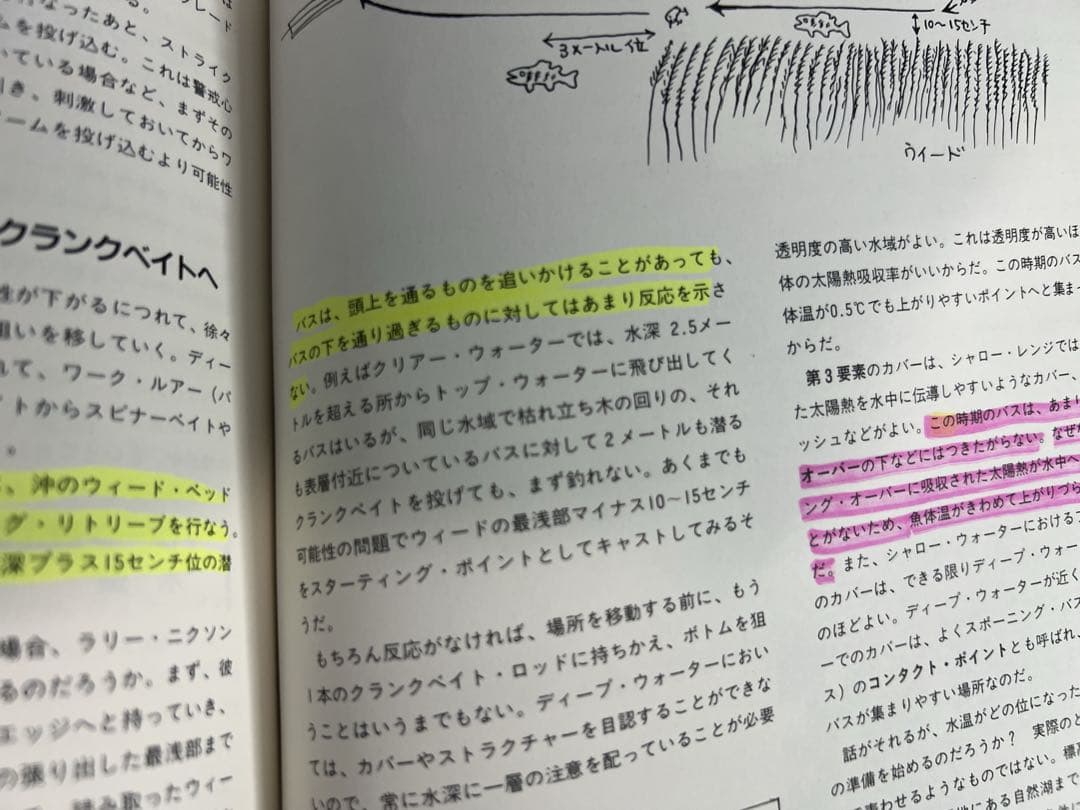 グレード
なったあと、ストライク
ムを投げ込む。これは警戒心
いている場合など、まずその
引き、刺激しておいてからワ
ームを投げ込むより可能性
クランクベイトへ
性が下がるにつれて、徐々
狙いを移していく。ディー
れて、ワーク・ルアー（バ
イトからスピナーベイトや
。
、沖のウィード・ベッド
グ・リトリーブを行なう。
深プラス15センチ位の潜
場合、ラリー・ニクソン
るのだろうか。まず、彼
エッジへと持っていき、
の張り出した最浅部まで
3メートル位
10〜15センチ
ウィード
バスは、頭上を通るものを追いかけることがあっても、
バスの下を通り過ぎるものに対してはあまり反応を示さ
ない。例えばクリアー・ウォーターでは、水深 2.5メー
トルを超える所からトップ・ウォーターに飛び出してく
るバスはいるが、同じ水域で枯れ立ち木の回りの、それ
も表層付近についているバスに対して２メートルも潜る
クランクベイトを投げても、まず釣れない。あくまでも
可能性の問題でウィードの最浅部マイナス10〜15センチ
をスターティング・ポイントとしてキャストしてみるそ
うだ。
もちろん反応がなければ、場所を移動する前に、もう
1本のクランクベイト・ロッドに持ちかえ、ボトムを狙
うことはいうまでもない。ディープ・ウォーターにおい
ては、カバーやストラクチャーを目認することができな
いので、常に水深に一層の注意を配っていることが必要
透明度の高い水域がよい。これは透明度が高いほ
体の太陽熱吸収率がいいからだ。この時期のバス
体温が0.5℃でも上がりやすいポイントへと集ま
からだ。
第３要素のカバーは、シャロー・レンジでは
た太陽熱を水中に伝導しやすいようなカバー、
ッシュなどがよい。この時期のバスは、あまり
オーバーの下などにはつきたがらない。なぜか
ング・オーバーに吸収された太陽熱が水中へ
とがないため、魚体温がきわめて上がりづら
だ。また、シャロー・ウォーターにおける
のカバーは、できる限りディープ・ウォー
のほどよい。ディープ・ウォーターが近く
ーでのカバーは、よくスポーニング・バス
ス）のコンタクト・ポイントとも呼ばれ、
バスが集まりやすい場所なのだ。
話がそれるが、水温がどの位になった
の準備を始めるのだろうか？ 実際のと
わせるようなものではない。標
にある自然湖まで